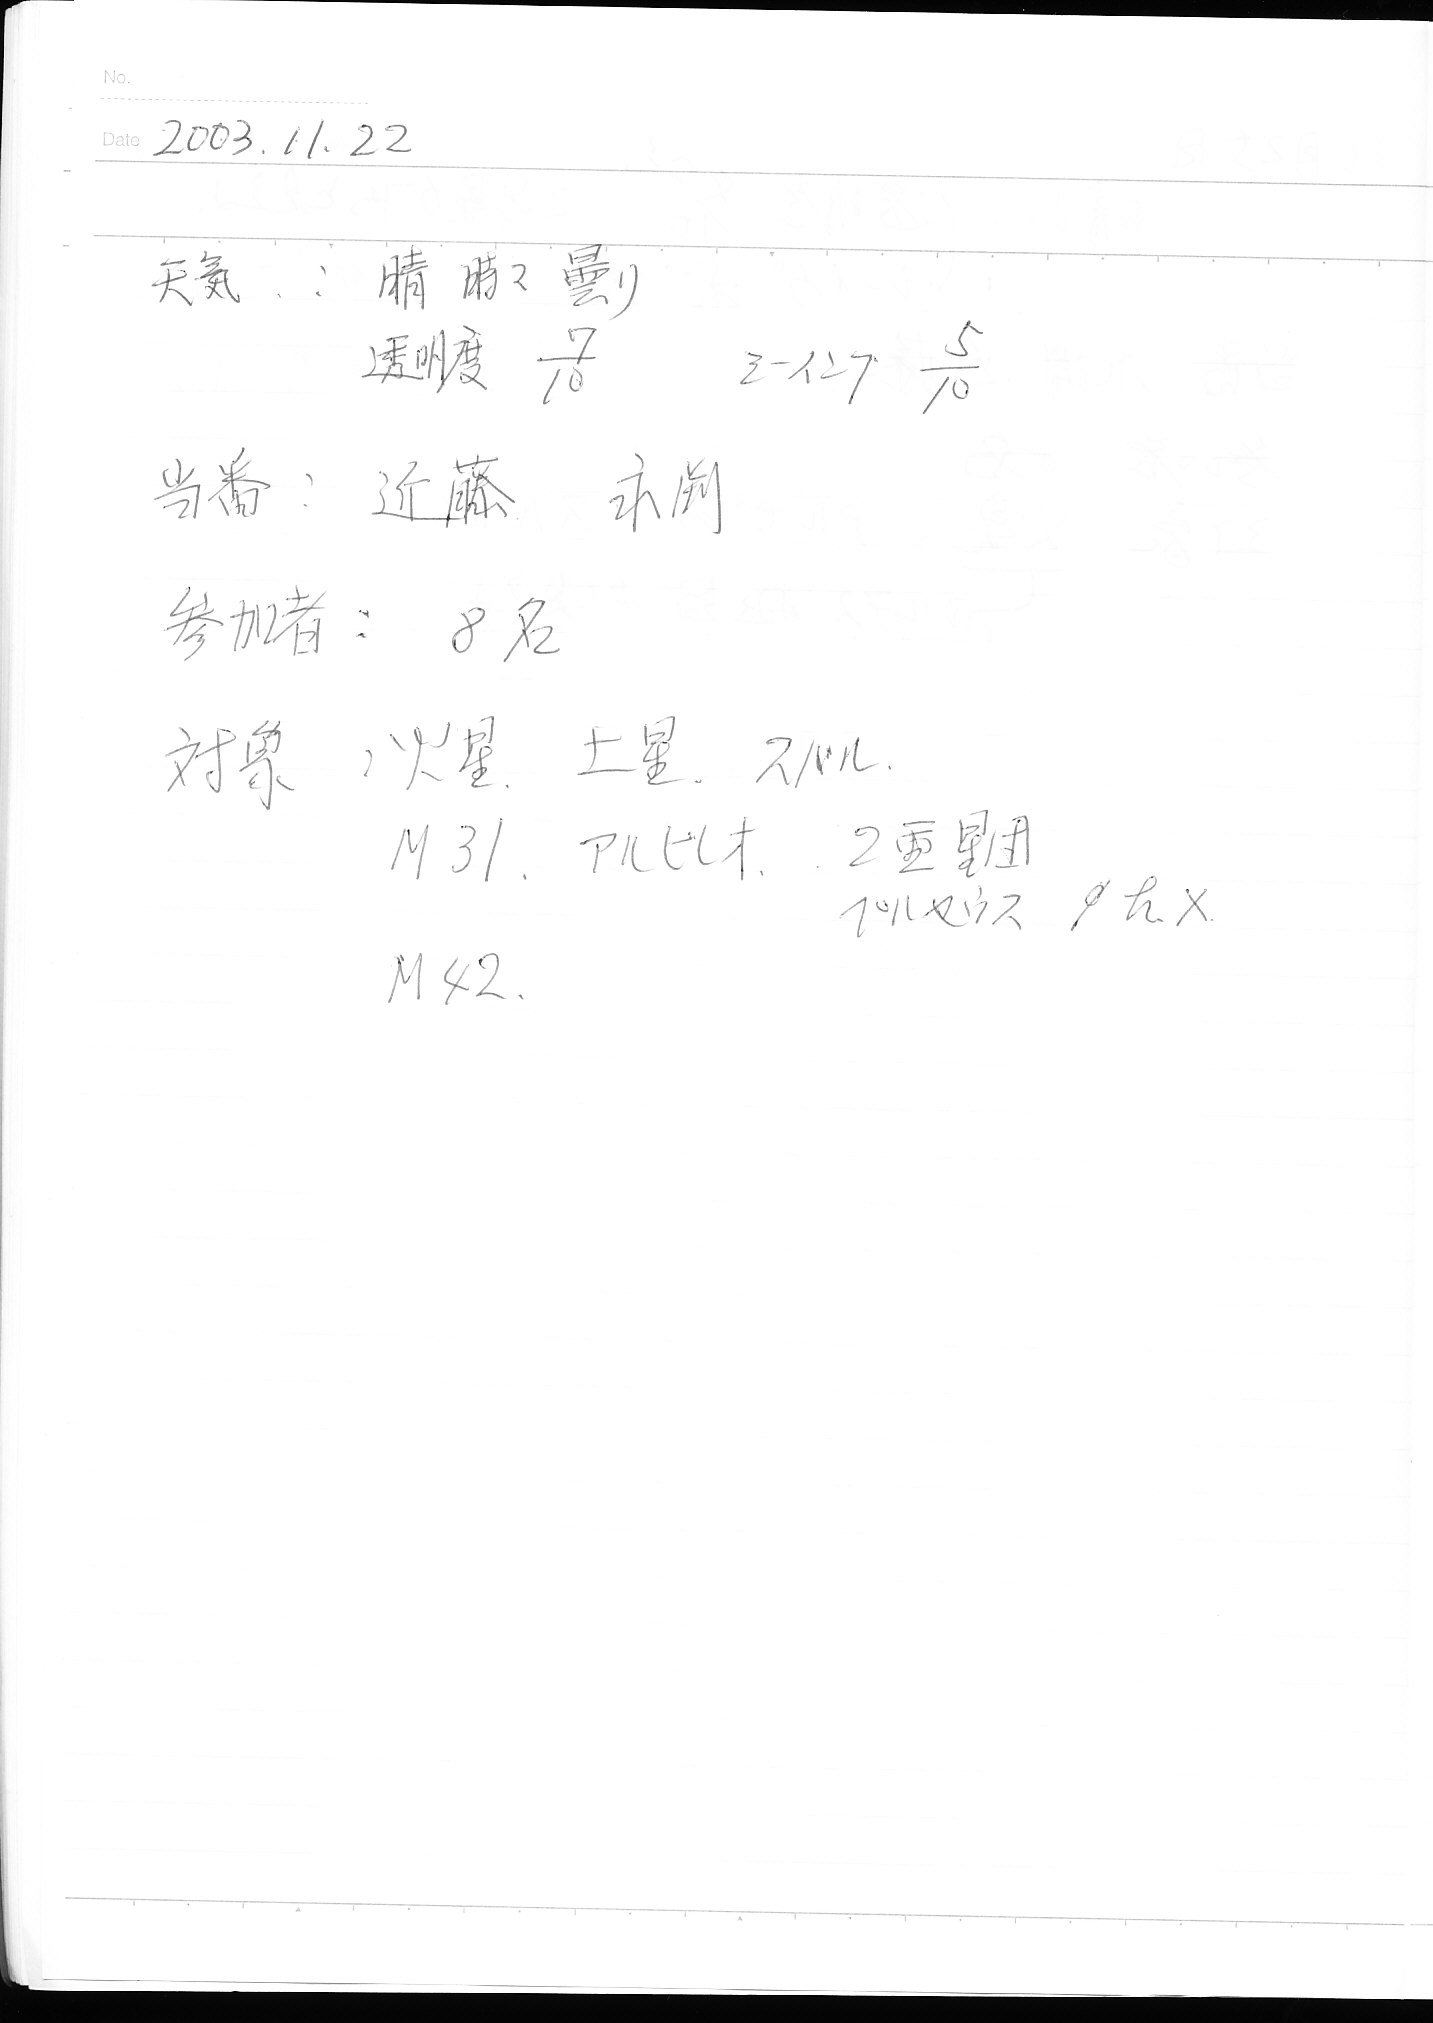 No.
Date 2003.11.22
天気 : 晴 時々 曇り
透明度 7/10 シーイング 5/10
当番 : 近藤 永渕
参加者 : 8名
対象 : 火星. 土星. スバル.
M31. アルビレオ. 2重星団
ペルセウス
M42.